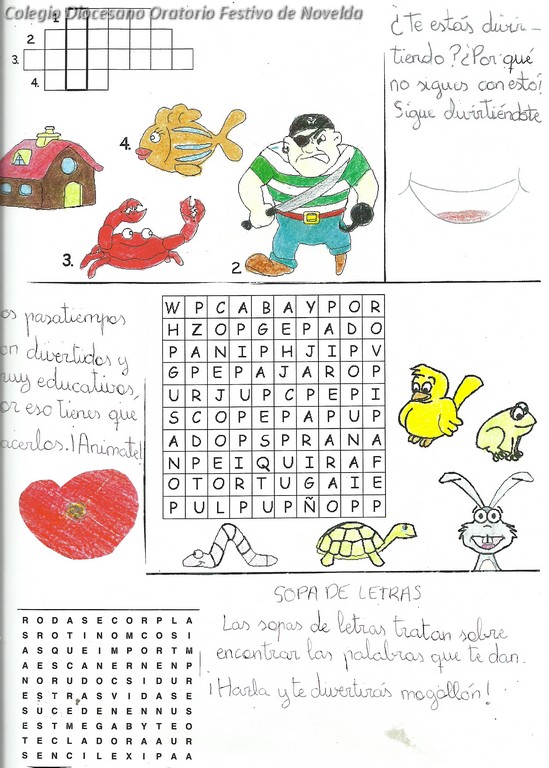 Colegio Diocesano Oratorio Festivo de Novelda
1.
2
3.
4.
¿Te estás diver-
tiendo? ¿Por qué
no sigues con esto!
Sigue divirtiéndote
4.
3.
2
os pasatiempos
on divertidos y
muy educativos,
or eso tienes que
acerlos. ¡Animate!
W P C A B A Y P O R
H Z O P G E P A D O
P A N I P H J I P V
G P E P A J A R O P
U R J U P C P E P I
S C O P E P A P U P
A D O P S P R A N A
N P E I Q U I R A F
O T O R T U G A I E
P U L P U P Ñ O P P
SOPA DE LETRAS
Las sopas de letras tratan sobre
encontrar las palabras que te dan.
¡Harla y te divertirás mogollón!
R O D A S E C O R P L A
S R O T I N O M C O S I
A S Q U E I M P O R T M
A E S C A N E R N E N P
N O R U D O C S I D U R
E S T R A S V I D A S E
S U C E D E N E N N U S
E S T M E G A B Y T E O
T E C L A D O R A A U R
S E N C I L E X I P A A